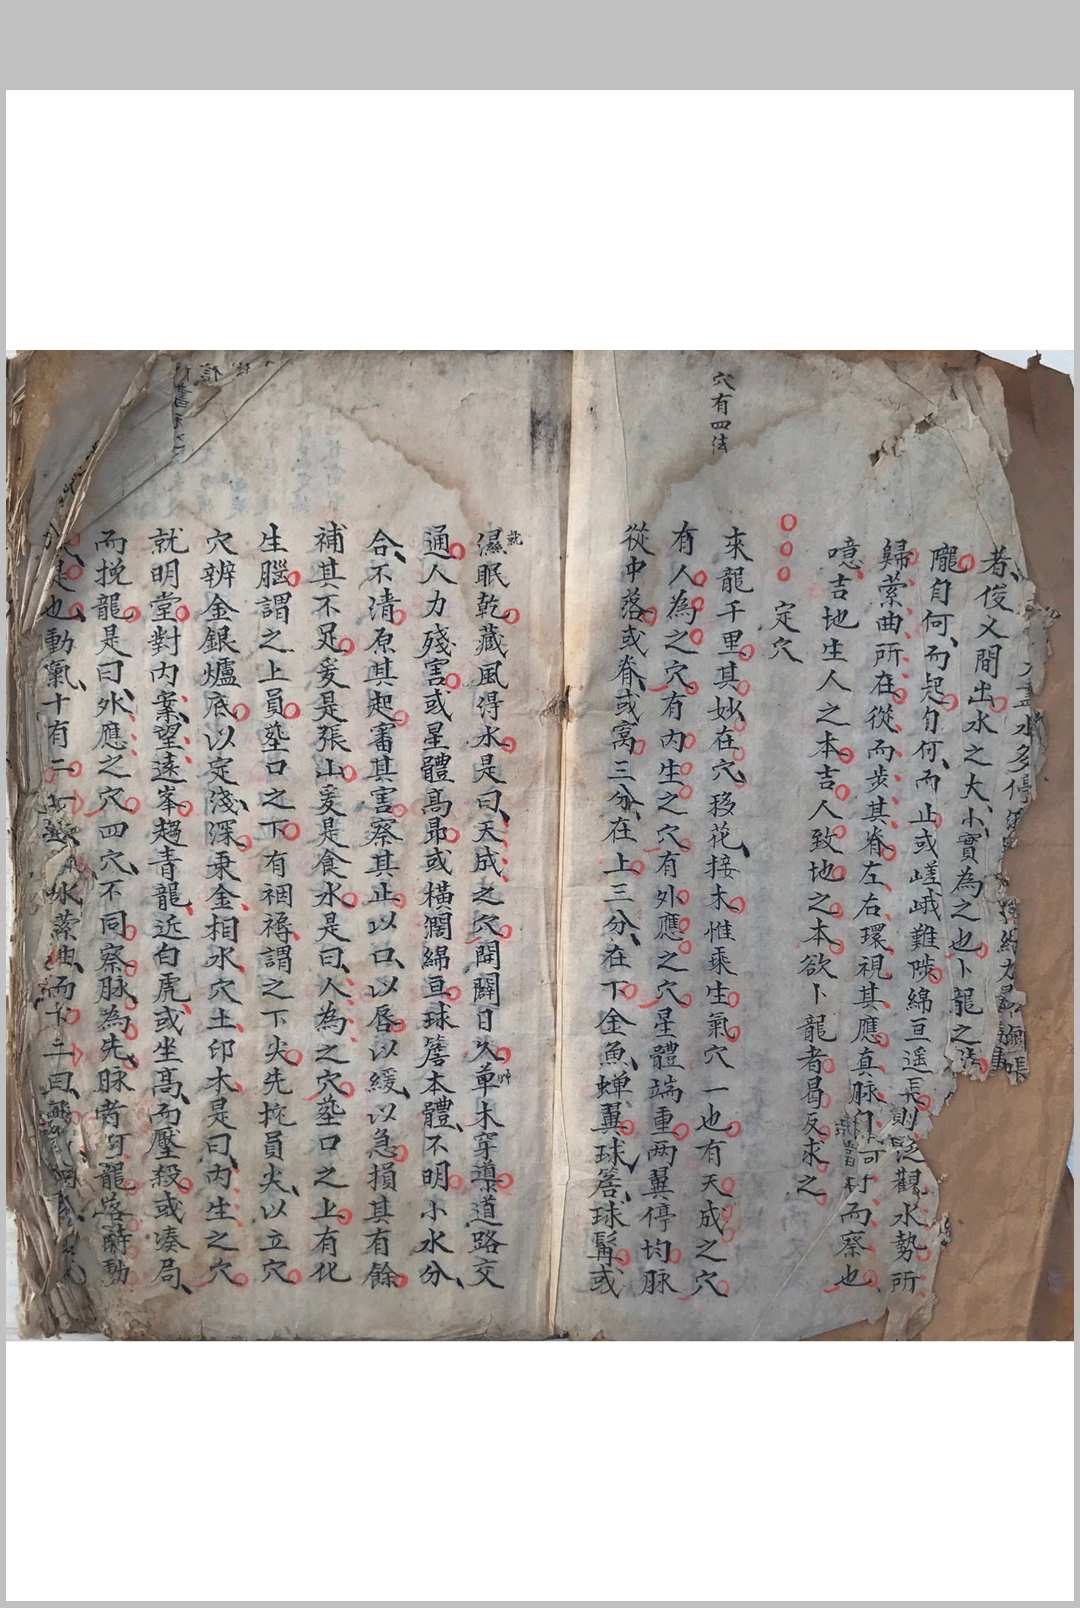 穴有四法
水多停
者俊又間出水之大小實為之也卜龍之法
隴自何而起自何而止或嵯峨難陟綿亘遥長則泛觀水勢所
歸縈曲所在從而步其脊左右環視其應真脉自可村而察也
噫吉地生人之本吉人致地之本欲卜龍者曷反求之
定穴
來龍千里其妙在穴移花接木惟乘生氣穴一也有天成之穴
有人為之穴有内生之穴有外應之穴星體端重两翼停均脉
從中落或脊或窩三分在上三分在下金魚蟬翼球簷球髯或
濕眠乾藏風得水是曰天成之穴開闢日久草木穿導道路交
通人力殘害或星體髙昴或橫濶綿亘球簷本體不明小水分
合不清原其起審其害察其止以口以唇以緩以急損其有餘
補其不足爰是張山爰是食水是曰人為之穴塟口之上有化
生腦謂之上員塟口之下有裀褥謂之下尖先挓員尖以立穴
穴辨金銀爐底以定淺深秉金相水穴土印木是曰内生之穴
就明堂對内案望遠峯趨青龍近白虎或坐髙而壓殺或凑局
而挽龍是曰外應之穴四穴不同察脉為先脉者何龍落時動
也動氣十有二